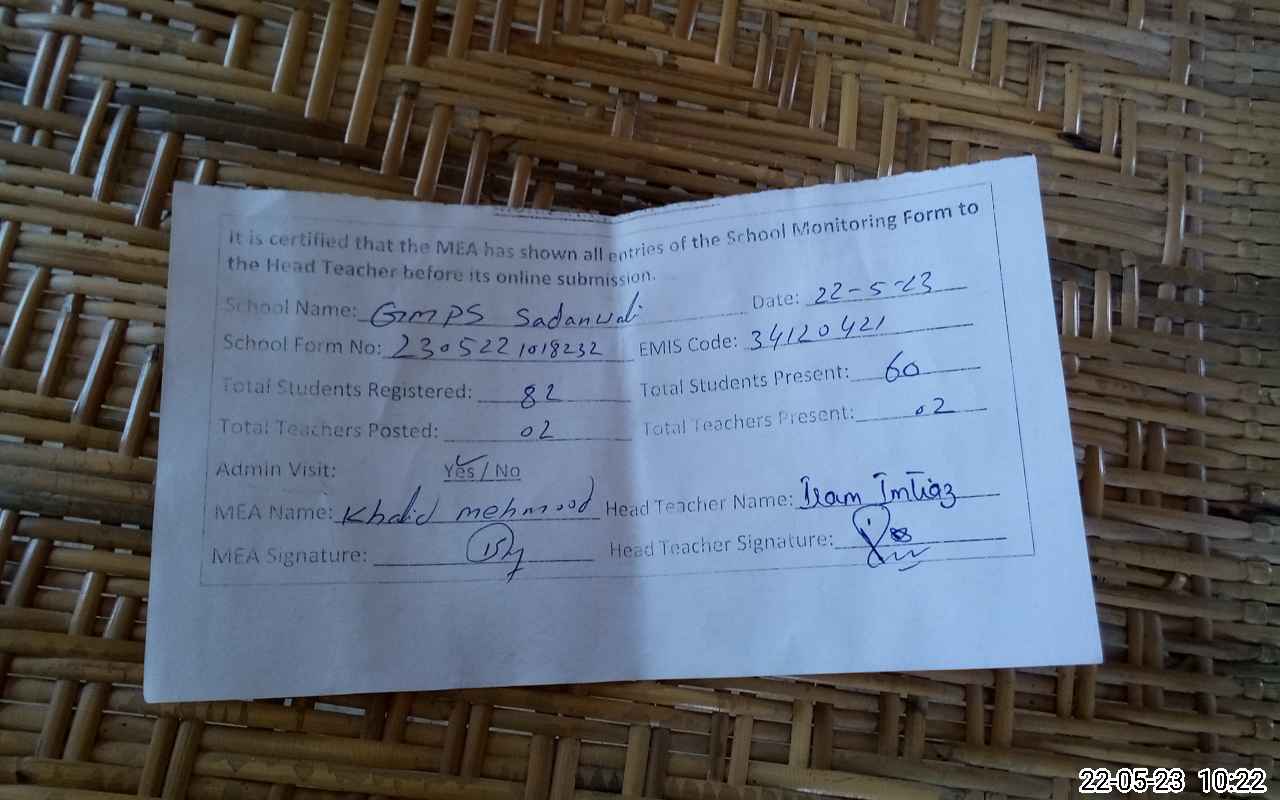 It is certified that the MEA has shown all entries of the School Monitoring Form to
the Head Teacher before its online submission.
School Name: GMPS Sadanwali Date: 22-5-23
School Form No: 2305221018232 EMIS Code: 34120421
Total Students Registered: 82 Total Students Present: 60
Total Teachers Posted: 02 Total Teachers Present: 02
Admin Visit: Yes / No
MEA Name: Khalid mehmood Head Teacher Name: Iram Imtiaz
MEA Signature: Head Teacher Signature:
22-05-23 10:22